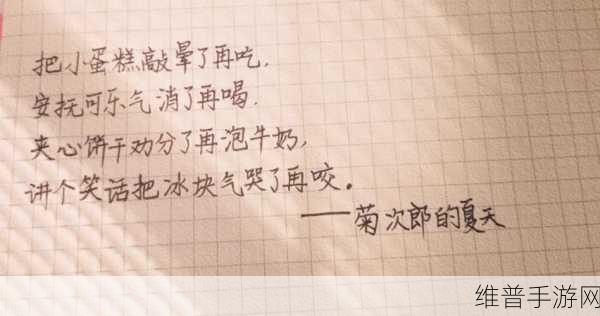 把小蛋糕敲晕了再吃,
安抚可乐气消了再喝.
夹心饼干劝分了再泡牛奶,
讲个笑话把冰块气哭了再咬。
——菊次郎的夏天
维普手游网